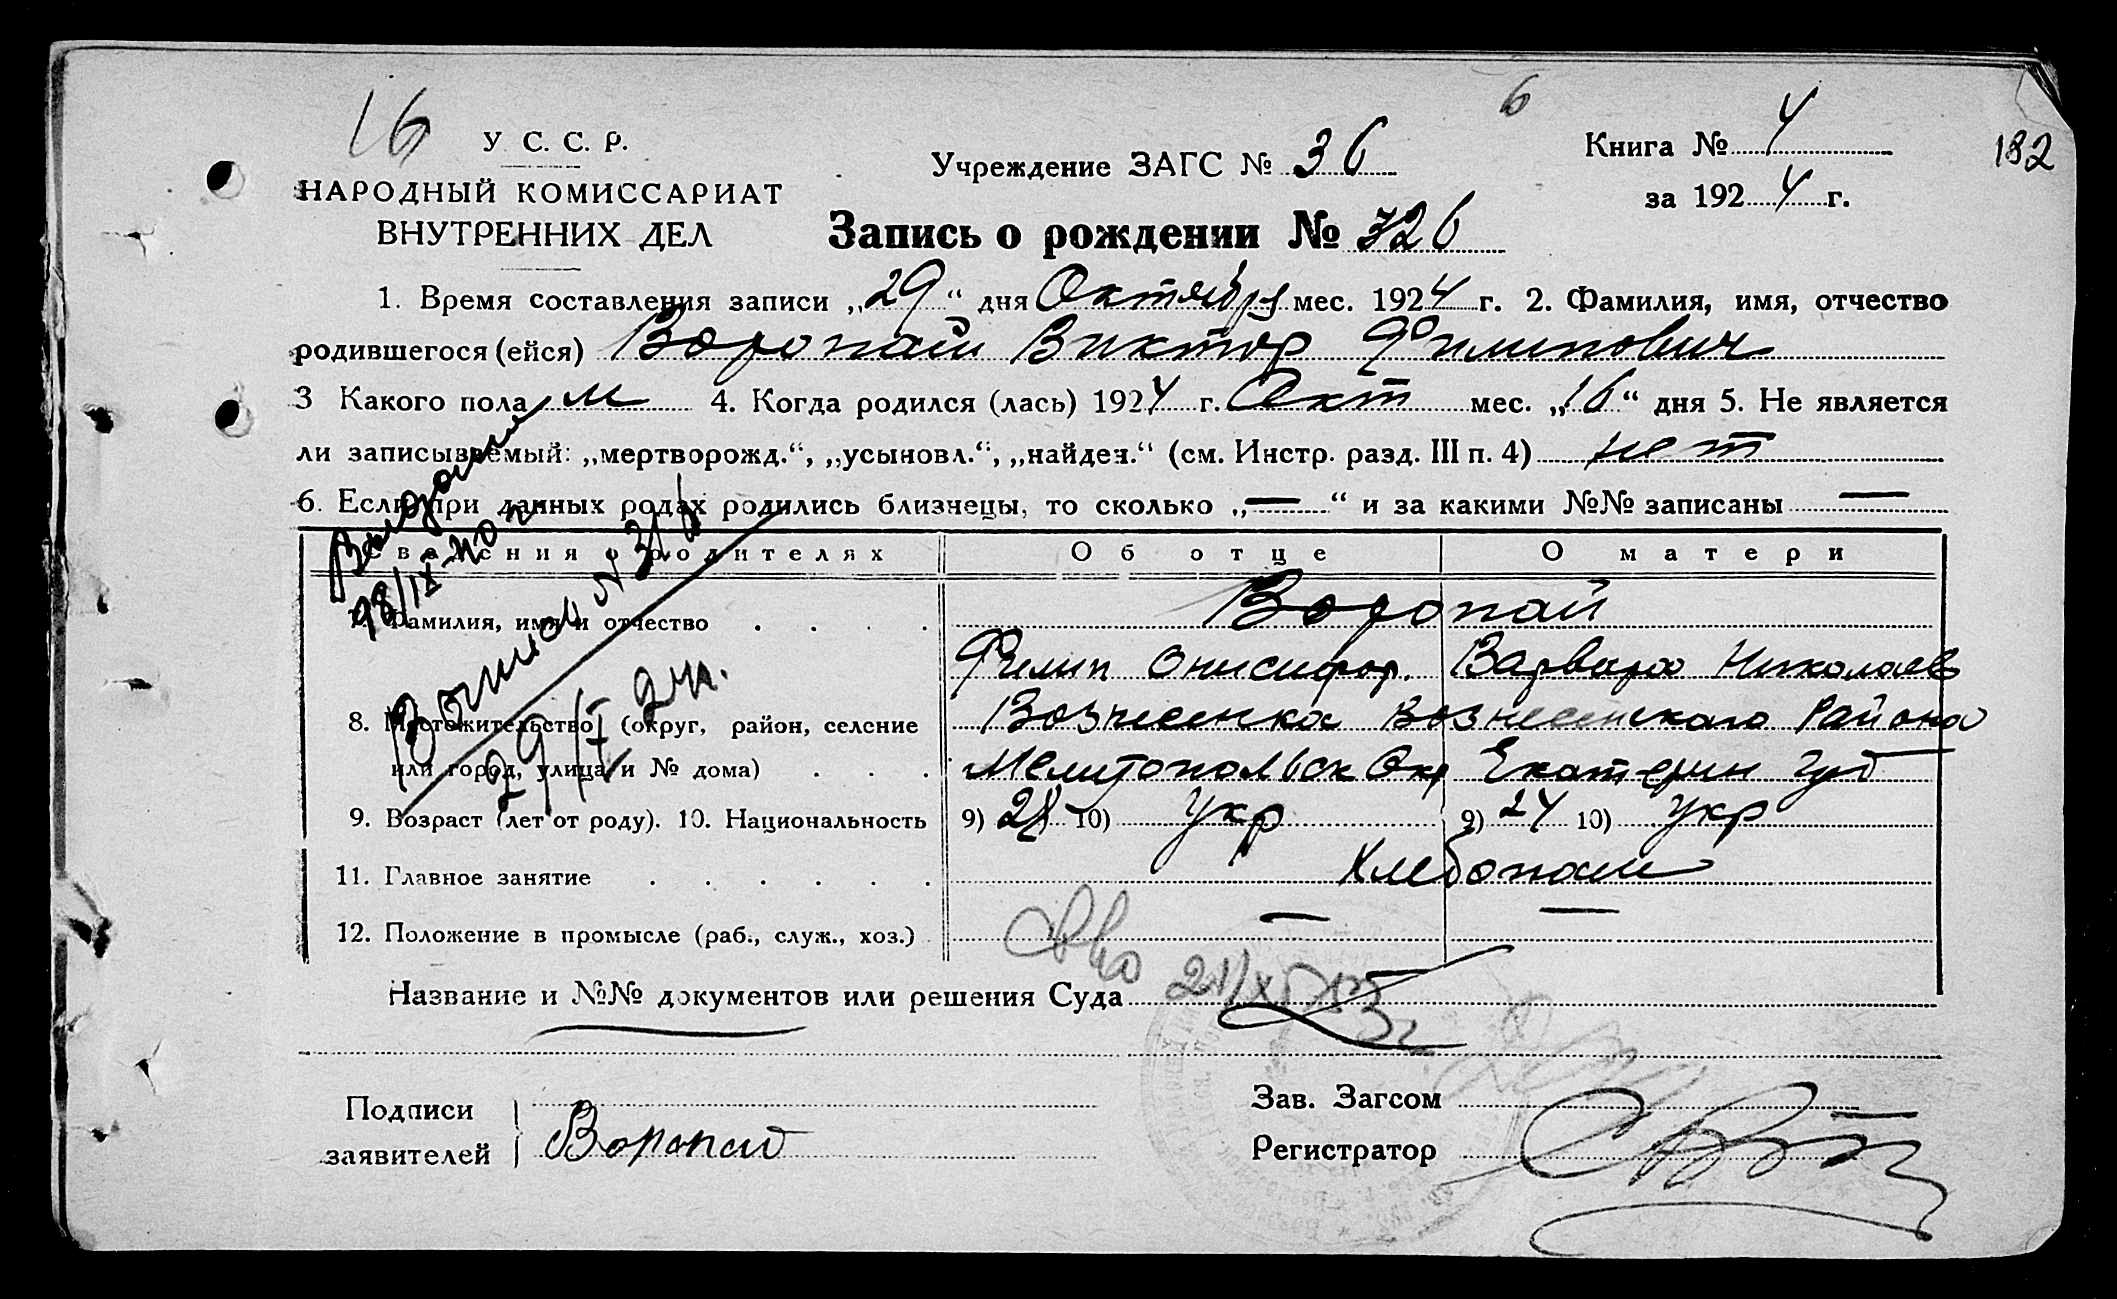 16
6
У. С. С. Р.
НАРОДНЫЙ КОМИССАРИАТ
ВНУТРЕННИХ ДЕЛ
Учреждение ЗАГС № 36
Книга № 4
за 1924 г.
182
Запись о рождении № 326
1. Время составления записи „29“ дня Октября мес. 1924 г. 2. Фамилия, имя, отчество
родившегося (ейся) Воропай Виктор Филипович
3 Какого пола м 4. Когда родился (лась) 1924 г. Окт мес. „16“ дня 5. Не является
ли записываемый: „мертворожд.“, „усыновл.“, „найден.“ (см. Инстр. разд. III п. 4) нет
6. Если при данных родах родились близнецы, то сколько „—“ и за какими №№ записаны —
Сведения о родителях Об отце О матери
7. Фамилия, имя и отчество Воропай
Филип Онисифор. Варвара Николаев
8. Местожительство (округ, район, селение Вознесенка Вознесенского Района
или город, улица и № дома) Мелитопольск Окр Екатерин губ
9. Возраст (лет от роду). 10. Национальность 9) 28 10) укр 9) 24 10) укр
11. Главное занятие Хлебопаш
12. Положение в промысле (раб., служ., хоз.) — —
Название и №№ документов или решения Суда
Подписи
заявителей Воропай
Зав. Загсом
Регистратор